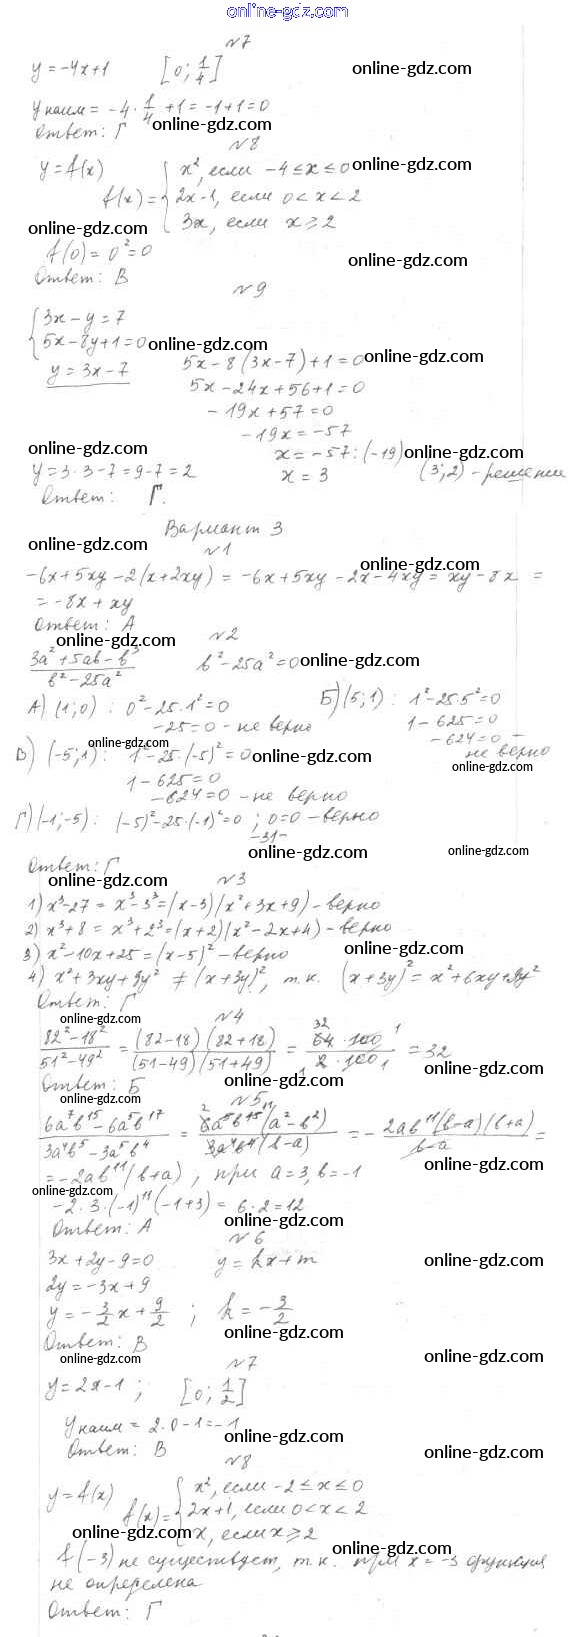 online-gdz.com
№7
y = -4x+1 [0; 1/4] online-gdz.com
yнаим = -4 · 1/4 + 1 = -1+1 = 0
Ответ: Г online-gdz.com
№8
y = f(x) { x², если -4 ≤ x ≤ 0 online-gdz.com
f(x) = { 2x-1, если 0 < x < 2
online-gdz.com { 3x, если x ≥ 2
f(0) = 0² = 0 online-gdz.com
Ответ: В
№9
{ 3x - y = 7
{ 5x - 8y + 1 = 0 online-gdz.com
y = 3x - 7 5x - 8(3x-7) + 1 = 0 online-gdz.com
5x - 24x + 56 + 1 = 0
-19x + 57 = 0
-19x = -57
online-gdz.com x = -57 : (-19) online-gdz.com
y = 3·3 - 7 = 9-7 = 2 x = 3 (3; 2) - решение
Ответ: Г.
Вариант 3
online-gdz.com №1
online-gdz.com
-6x + 5xy - 2(x+2xy) = -6x + 5xy - 2x - 4xy = xy - 8x =
= -8x + xy
Ответ: А
online-gdz.com №2
(3a² + 5ab - b³)/(b² - 25a²) b² - 25a² = 0 online-gdz.com
А) (1; 0) : 0² - 25·1² = 0 Б) (5; 1) : 1² - 25·5² = 0
-25 = 0 - не верно 1 - 625 = 0
online-gdz.com -624 = 0 -
В) (-5; 1) : 1² - 25·(-5)² = 0 online-gdz.com не верно
1 - 625 = 0 online-gdz.com
-624 = 0 - не верно
Г) (-1; -5) : (-5)² - 25·(-1)² = 0 ; 0 = 0 - верно
-31-
online-gdz.com online-gdz.com
Ответ: Г
online-gdz.com №3
1) x³ - 27 = x³ - 3³ = (x-3)(x² + 3x + 9) - верно
2) x³ + 8 = x³ + 2³ = (x+2)(x² - 2x + 4) - верно
3) x² - 10x + 25 = (x-5)² - верно online-gdz.com
4) x² + 3xy + 9y² ≠ (x+3y)², т.к. (x+3y)² = x² + 6xy + 9y²
Ответ: Г
online-gdz.com №4
(82² - 18²)/(51² - 49²) = (82-18)(82+18)/(51-49)(51+49) = 64·100/2·100 = 32
Ответ: Б online-gdz.com
online-gdz.com №5
(6a⁷b¹⁵ - 6a⁵b¹⁷)/(3a⁴b⁵ - 3a⁵b⁴) = 6a⁵b¹⁵(a² - b²)/3a⁴b⁴(b-a) = - 2ab¹¹(b-a)(b+a)/(b-a) =
= -2ab¹¹(b+a), при a = 3, b = -1 online-gdz.com
online-gdz.com
-2·3·(-1)¹¹(-1+3) = 6·2 = 12
Ответ: А online-gdz.com
№6
3x + 2y - 9 = 0 y = kx + m online-gdz.com
2y = -3x + 9
y = -3/2 x + 9/2 ; k = -3/2
Ответ: В online-gdz.com
online-gdz.com №7 online-gdz.com
y = 2x - 1 ; [0; 1/2]
yнаим = 2·0 - 1 = -1 online-gdz.com
Ответ: В online-gdz.com
№8
y = f(x) { x², если -2 ≤ x ≤ 0
f(x) = { 2x+1, если 0 < x < 2
online-gdz.com x, если x ≥ 2
online-gdz.com
f(-3) не существует, т.к. при x = -3 функция
не определена
Ответ: Г